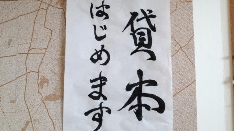 貸本
はじめます